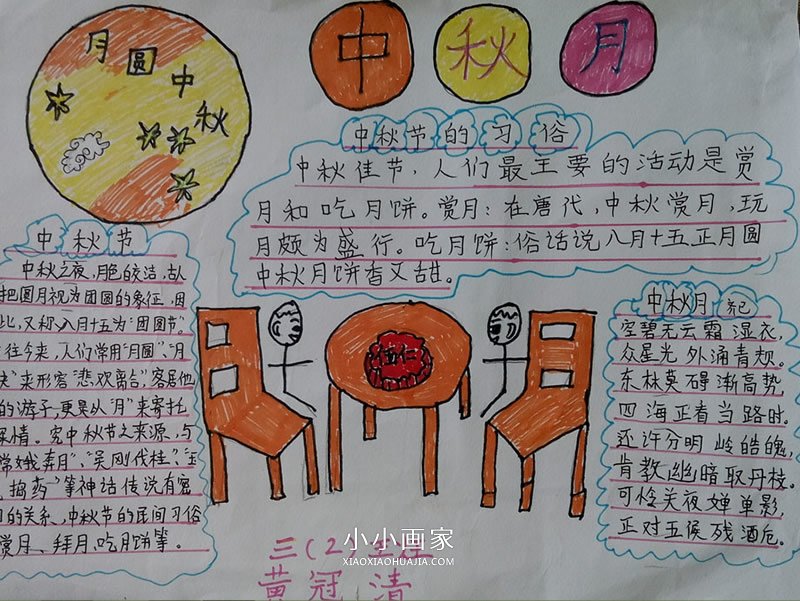 月圆中秋
中秋月
中秋节的习俗
中秋佳节,人们最主要的活动是赏
月和吃月饼。赏月:在唐代,中秋赏月,玩
月颇为盛行。吃月饼:俗话说八月十五正月圆
中秋月饼香又甜。
中秋节
中秋之夜,月色皎洁,古人
把圆月视为团圆的象征,因
此,又称八月十五为“团圆节”。
往今来,人们常用“月圆”、“月
来形容“悲欢离合”,客居他
的游子,更是从“月”来寄托
深情。究中秋节之来源,与
嫦娥奔月”、“吴刚伐桂”、“玉
捣药”等神话传说有密
的关系,中秋节的民间习俗
赏月、拜月、吃月饼等。
伍仁
中秋月
空碧无云霜湿衣,
众星光外涌青规。
东林莫碍渐高势,
四海正看当路时。
还许分明岭皓魄,
肯教幽暗取丹枝。
可怜关夜婵单影,
正对五侯残酒卮。
三(2)
黄冠清
小小画家
XIAOXIAOHUAJIA.COM